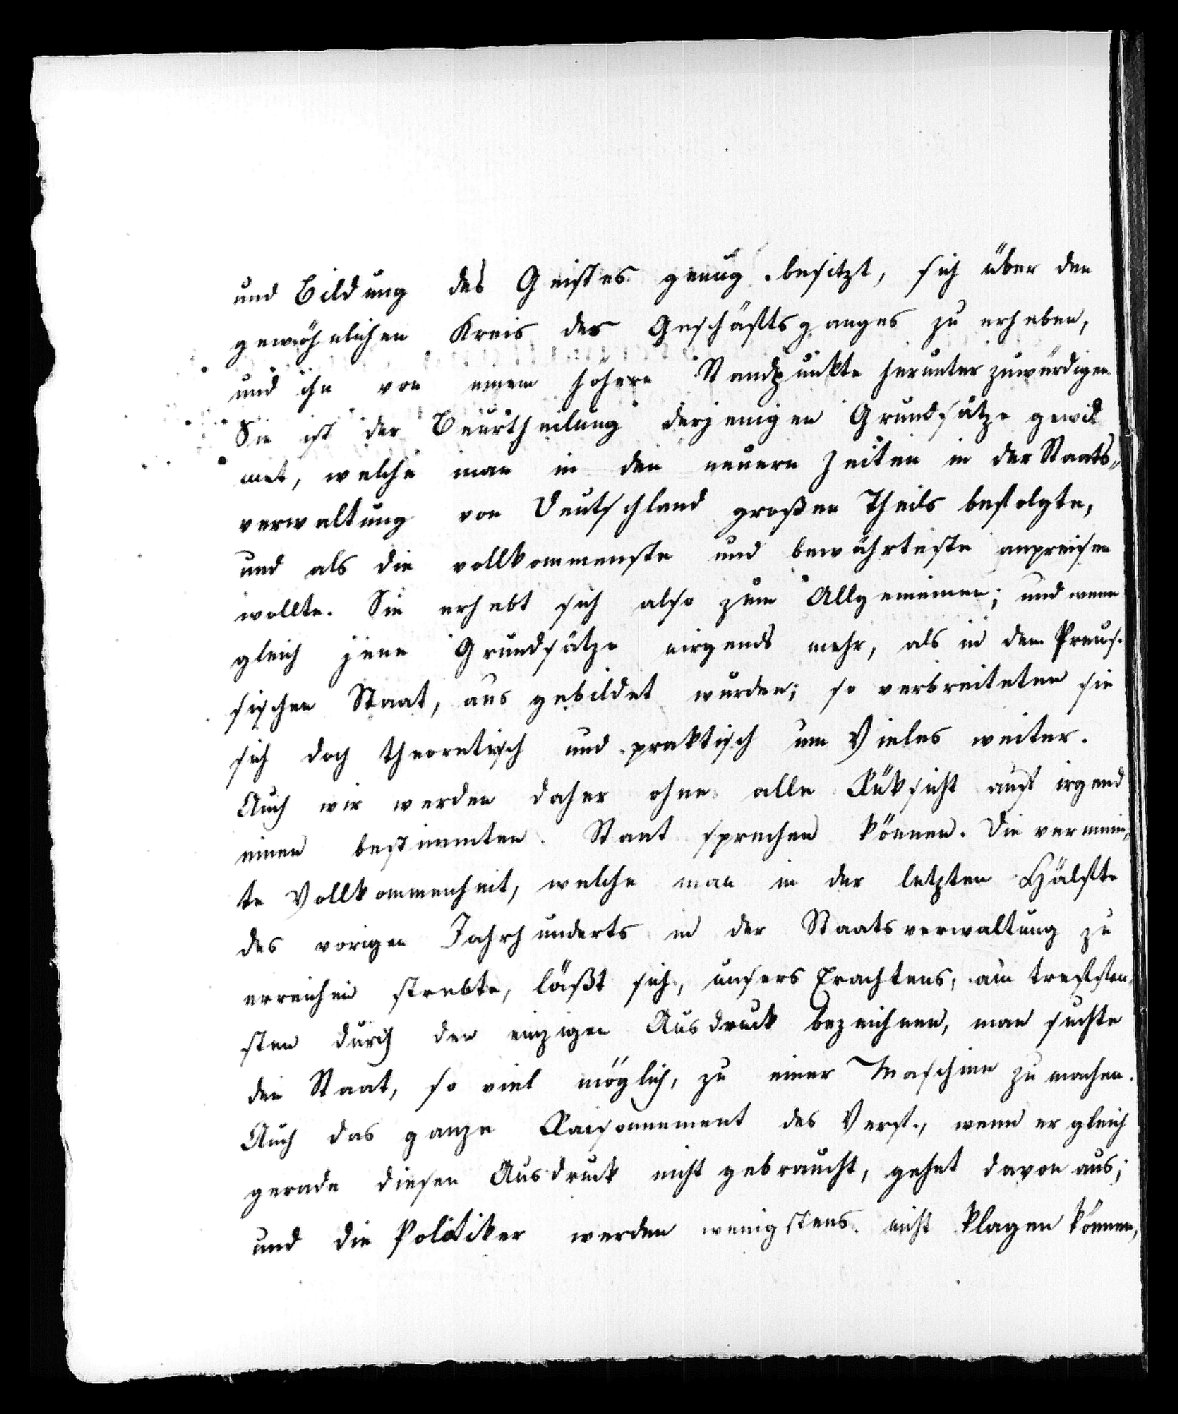 und Bildung des Geistes genug besitzt, sich über den
gewöhnlichen Kreis des Geschäftsganges zu erheben,
und ihn von einem hohern Standpunkte herunter zuwürdigen
Sie ist der Beurtheilung derjenigen Grundsätze gewid
met, welche man in den neuern Zeiten in der Staats„
verwaltung von Deutschland großen Theils befolgte,
und als die vollkommenste und bewährteste anpreisen
wollte. Sie erhebt sich also zum Allgemeinen; und wenn
gleich jene Grundsätze nirgends mehr, als in dem Preus-
sischen Staat, aus gebildet wurden; so verbreiteten sie
sich doch theoretisch und praktisch um Vieles weiter.
Auch wir werden daher ohne alle Rüksicht auf irgend
einen bestimmten Staat sprechen können. Die vermein„
te Vollkommenheit, welche man in der letzten Hälfte
des vorigen Jahrhunderts in der Staatsverwaltung zu
erreichen strebte, läßt sich, unsers Erachtens, am treffen„
sten durch den einzigen Ausdruck bezeichnen, man suchte
den Staat, so viel möglich, zu einer Maschine zu machen.
Auch das ganze Raisonnement des Verf., wenn er gleich
gerade diesen Ausdruck nicht gebraucht, gehet davon aus;
und die Politiker werden wenigstens nicht klagen können,